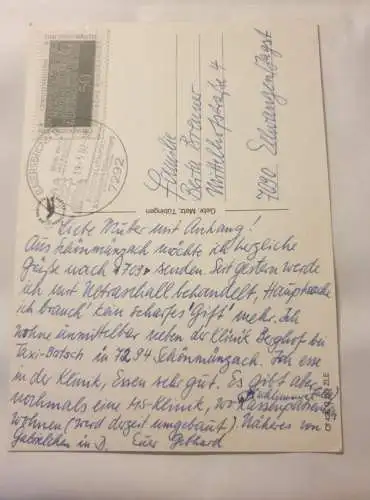 Familie
Berta Brauner
Mittelhofstraße 4
7090 Ellwangen/Jagst
50
7292
Gebr. Metz, Tübingen
Liebe Mutter mit Anhang!
Aus Schönmünzach möchte ich herzliche
Grüße nach "7090" senden. Seit gestern werde
ich mit Ultraschall behandelt, Hauptsache
ich brauch' kein scharfes "Gift" mehr. Ich
wohne unmittelbar neben der Klinik Berghof bei
Taxi-Botsch in 7294 Schönmünzach. Ich esse
in der Klinik, Essen sehr gut. Es gibt aber
nochmals eine MS-Klinik, wo Kassenpatienten
wohnen (wird derzeit umgebaut) Näheres von
in D. Euer Gebhard